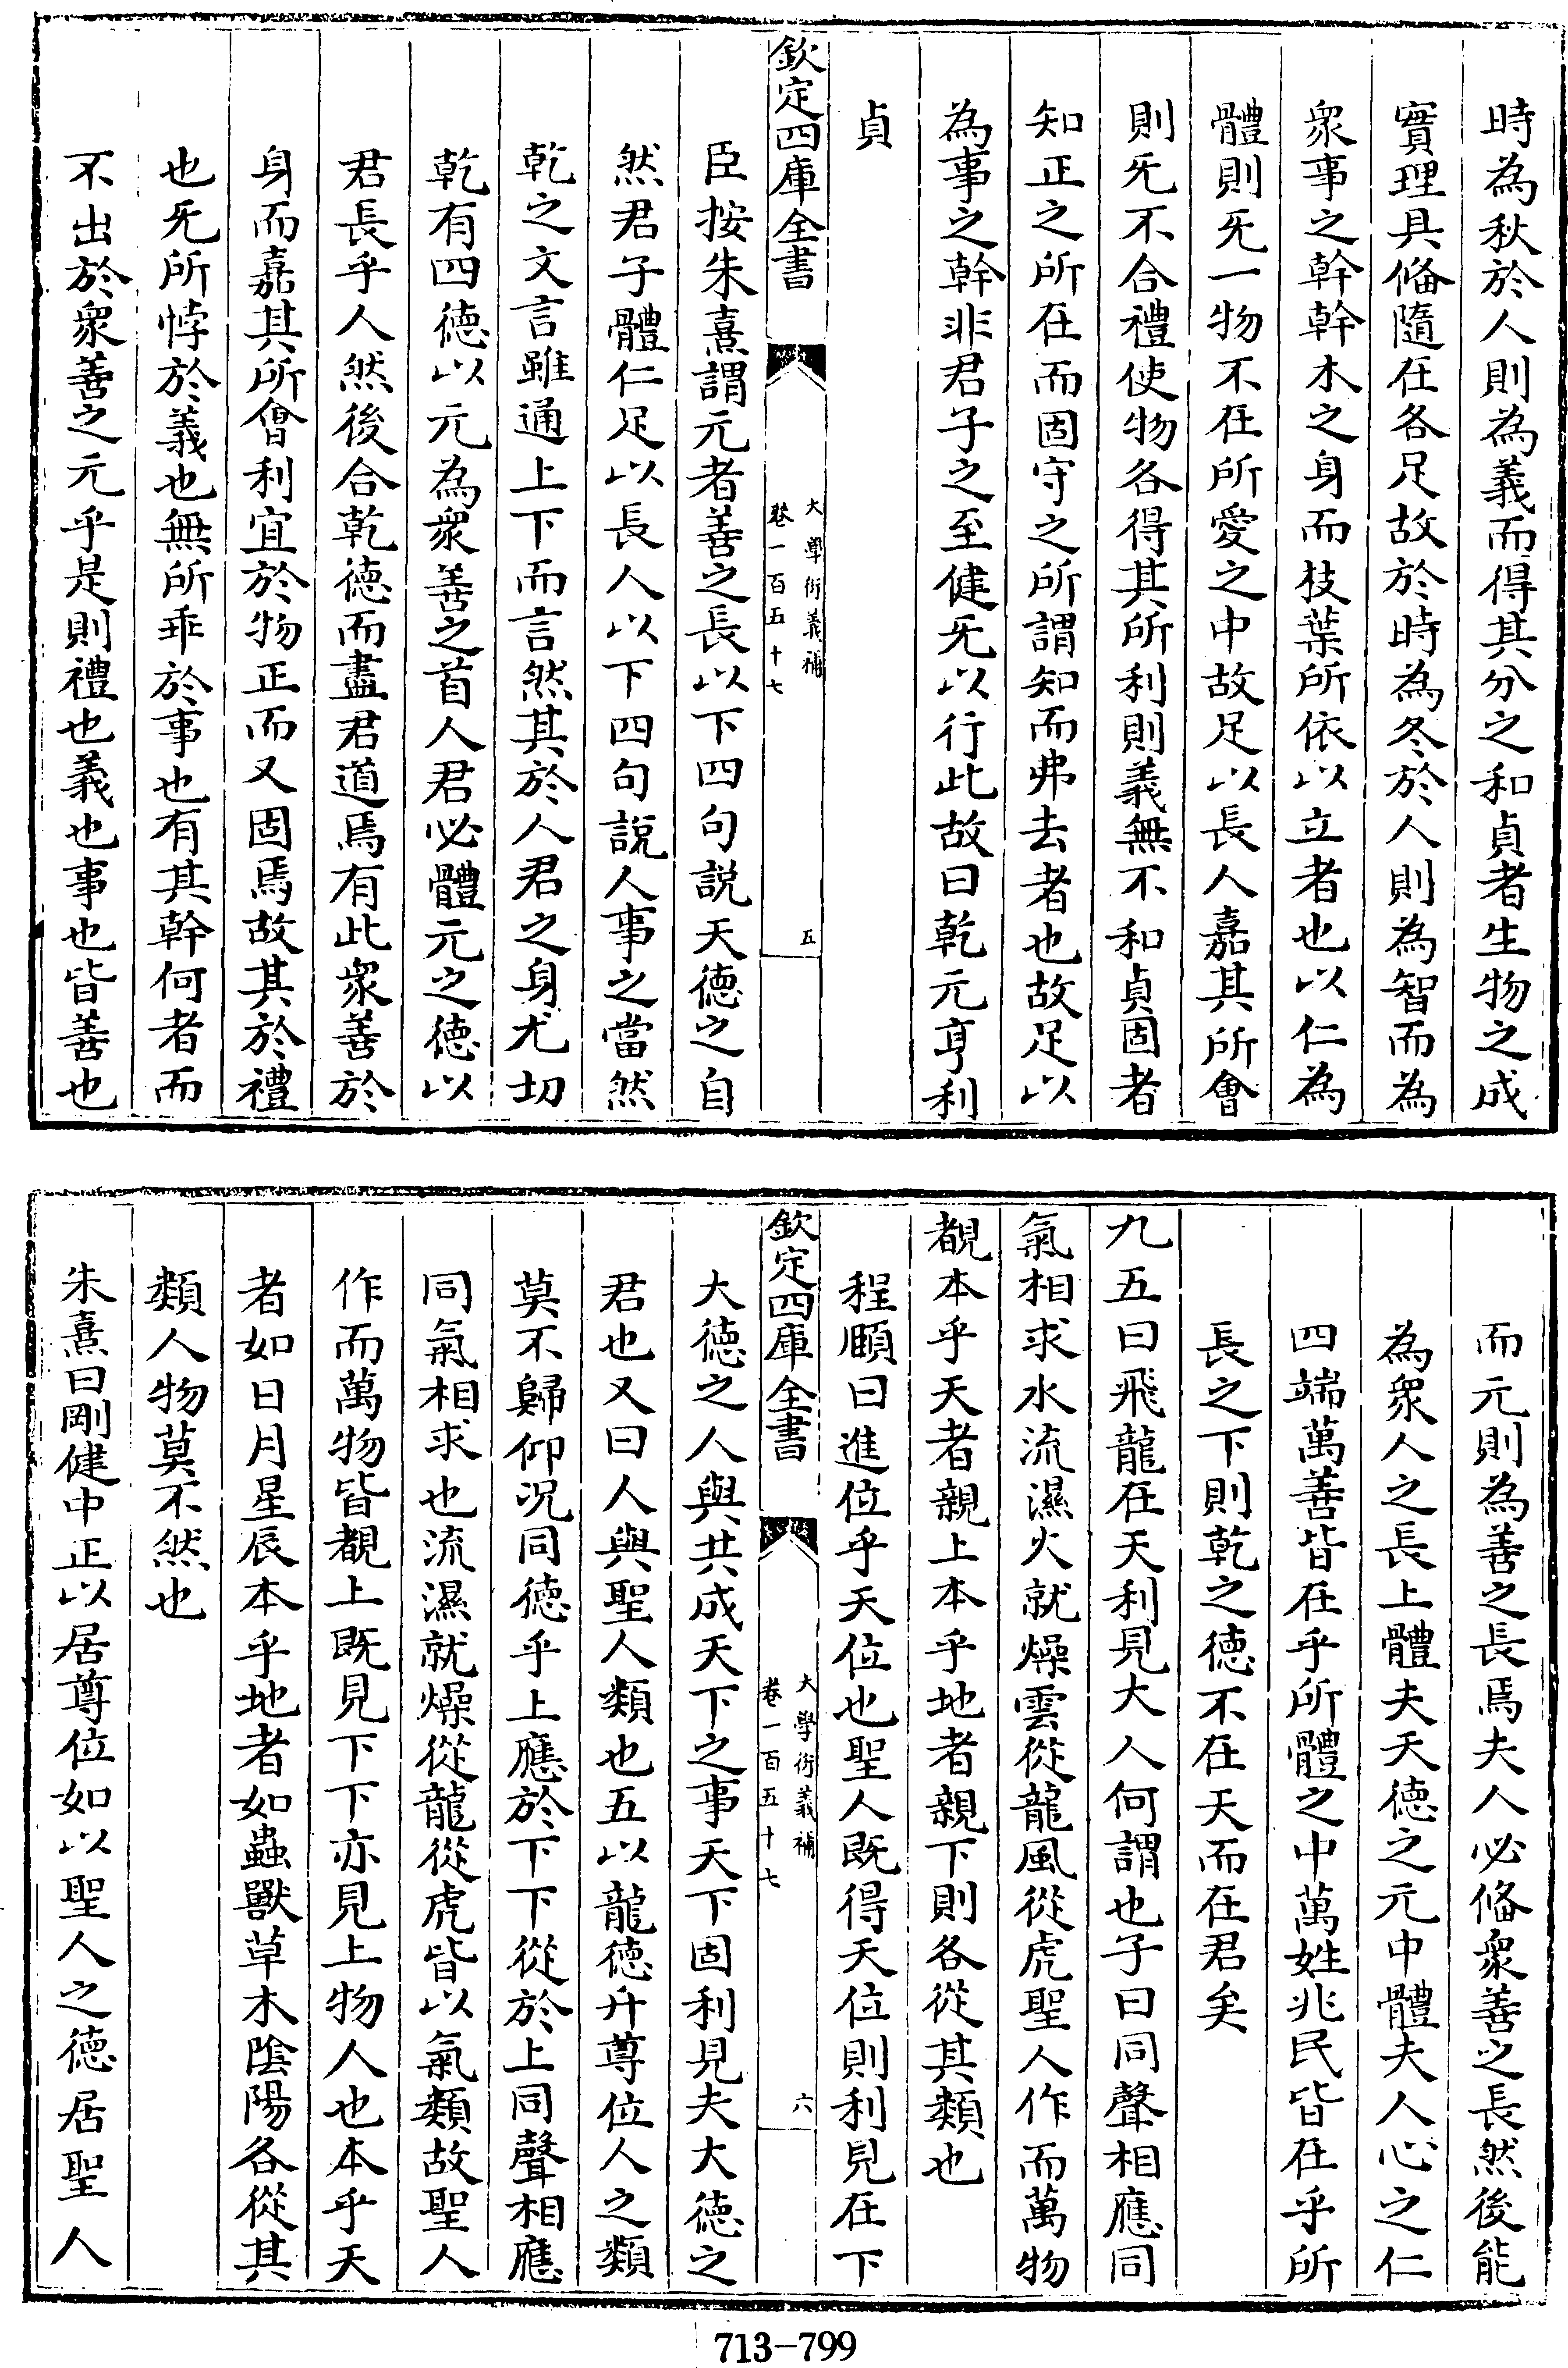 時為秋於人則為義而得其分之和貞者生物之成
實理具俻隨在各足故於時為冬於人則為智而為
衆事之幹幹木之身而枝葉所依以立者也以仁為
體則旡一物不在所愛之中故足以長人嘉其所會
則旡不合禮使物各得其所利則義無不和貞固者
知正之所在而固守之所謂知而弗去者也故足以
為事之幹非君子之至健旡以行此故曰乾元亨利
貞
欽定四庫全書
大學衍義補
卷一百五十七
五
臣按朱熹謂元者善之長以下四句説天徳之自
然君子體仁足以長人以下四句說人事之當然
乾之文言雖通上下而言然其於人君之身尤切
乾有四徳以元為衆善之首人君必體元之徳以
君長乎人然後合乾徳而盡君道焉有此衆善於
身而嘉其所㑹利宜於物正而又固焉故其於禮
也旡所悖於義也無所乖於事也有其幹何者而
不出於衆善之元乎是則禮也義也事也皆善也
而元則為善之長焉夫人必俻衆善之長然後能
為衆人之長上體夫天徳之元中體夫人心之仁
四端萬善皆在乎所體之中萬姓兆民皆在乎所
長之下則乾之徳不在天而在君矣
九五曰飛龍在天利見大人何謂也子曰同聲相應同
氣相求水流濕火就燥雲從龍風從虎聖人作而萬物
覩本乎天者親上本乎地者親下則各從其類也
程頤曰進位乎天位也聖人既得天位則利見在下
欽定四庫全書
大學衍義補
卷一百五十七
六
大徳之人與共成天下之事天下固利見夫大徳之
君也又曰人與聖人類也五以龍徳升尊位人之類
莫不歸仰況同徳乎上應於下下從於上同聲相應
同氣相求也流濕就燥從龍從虎皆以氣類故聖人
作而萬物皆覩上既見下下亦見上物人也本乎天
者如日月星辰本乎地者如蟲獸草木陰陽各從其
類人物莫不然也
朱熹曰剛健中正以居尊位如以聖人之徳居聖人
713-799